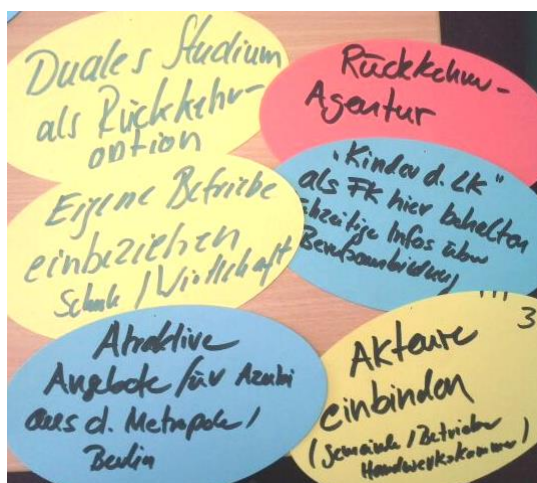 Duales Studium
als Rückkehr-
option
Rückkehr-
Agentur
Eigene Betriebe
einbeziehen
Schule / Wirtschaft
"Kinder d. LK"
als FK hier behalten
Infos über
Berufsausbildung
Atraktive
Angebote für Azubi
aus d. Metropole /
Berlin
3
Akteure
einbinden
(Gemeinde / Betriebe /
Handwerkskammer)